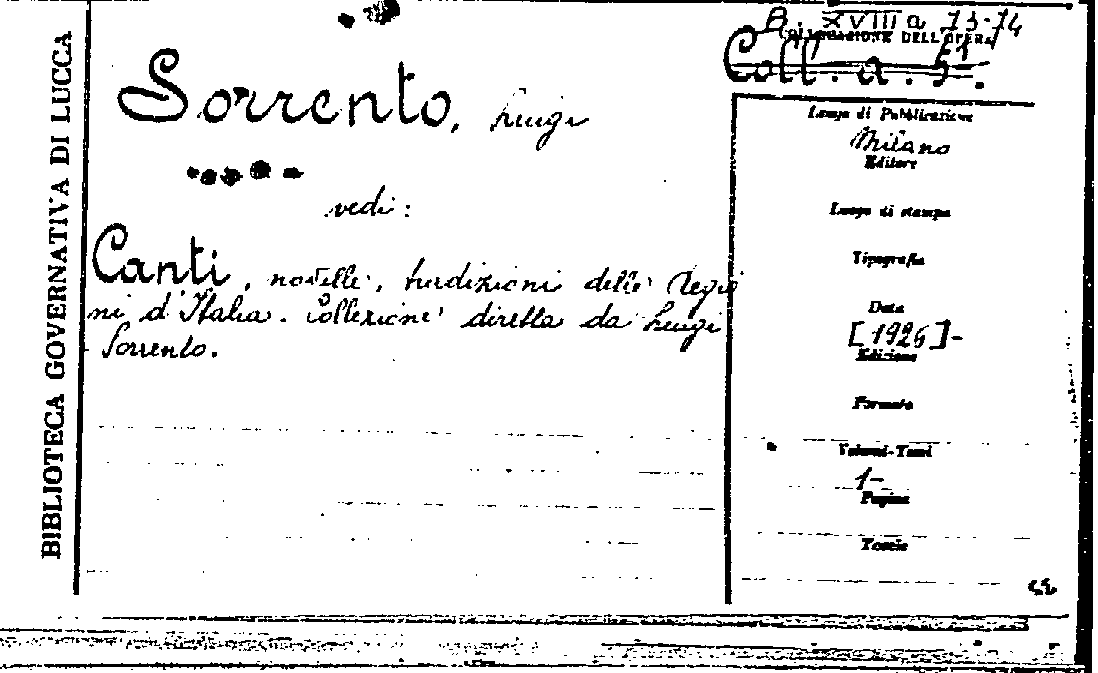 BIBLIOTECA GOVERNATIVA DI LUCCA
Sorrento, Luigi
vedi:
Canti, novelle, tradizioni delle Regio
ni d'Italia. Collezione diretta da Luigi
Sorrento.
B. XVIII a 73-74
COLLOCAZIONE DELL'OPERA
Coll. a. 51.
Luogo di Pubblicazione
Milano
Editore
Luogo di stampa
Tipografia
Data
[1926]-
Edizione
Formato
Volumi-Tomi
1-
Pagine
Tavole